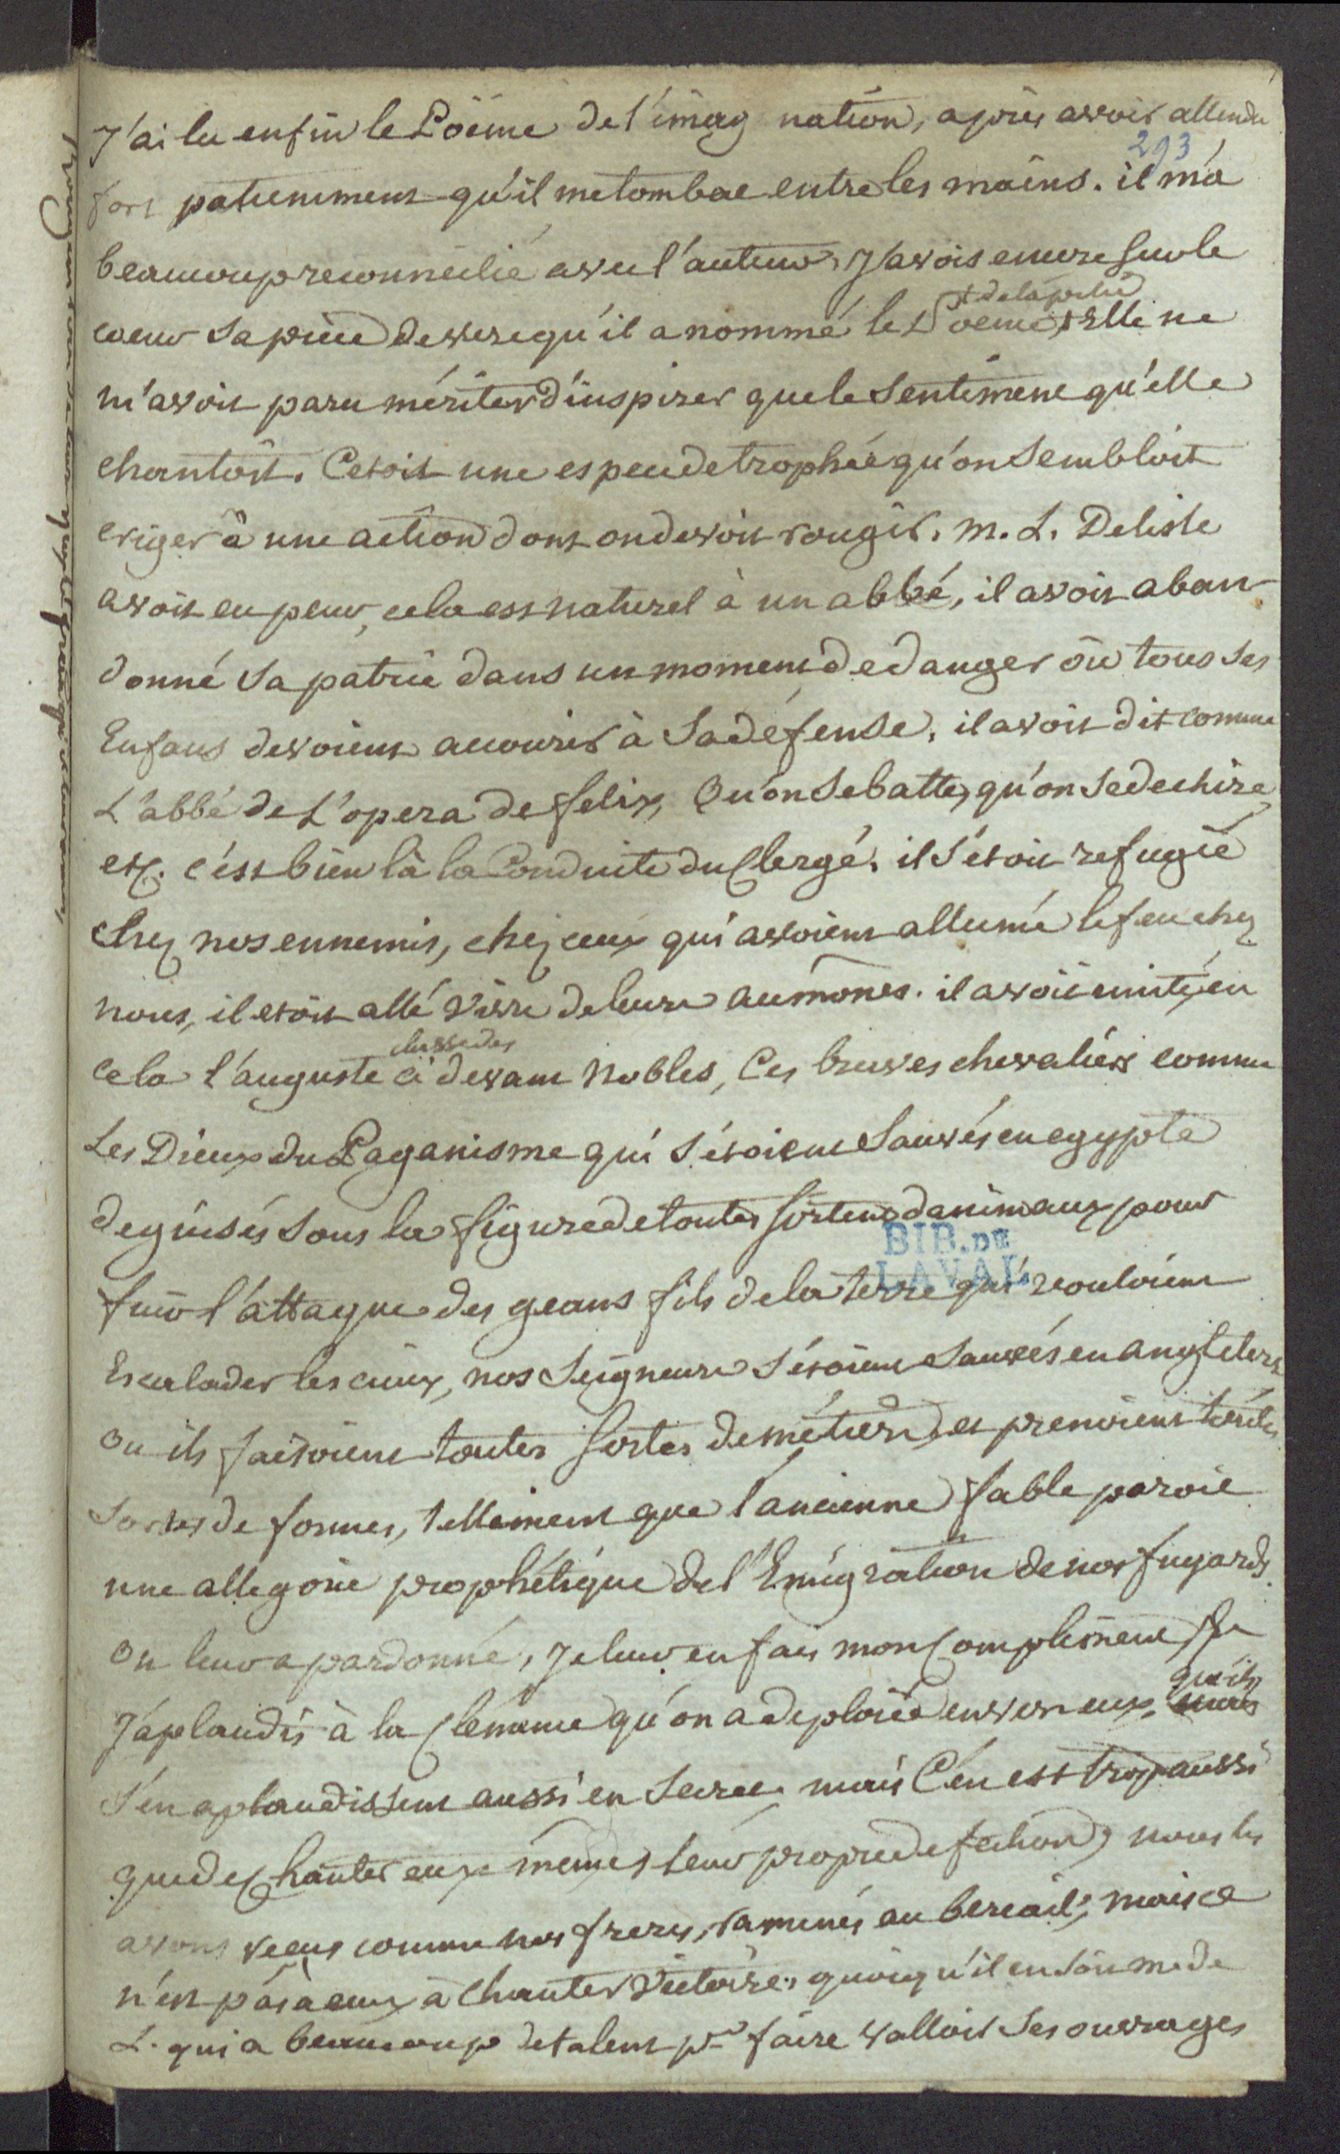 J'ai lu enfin le Poëme de l'imag nation, après avoir attendu
293
fort patiemment qu'il me tombat entre les mains. il m'a
beaucoup reconncilié avec l'auteur, J'avois encore sur le
coeur sa pièce de vers qu'il a nommé le Poeme + de la pitié, Elle ne
m'avoit paru mériter d'inspirer que le sentiment qu'elle
chantoit. C'etoit une espece de trophée qu'on sembloit
eriger à une action dont on devoit rougir. M. L. Delisle
avoit eu peur, cela est naturel à un abbé, il avoit aban-
donné sa patrie dans un moment de danger où tous ses
Enfans devoient accourir à sa défense, il avoit dit comme
L'abbé de L'opera de felix, Qu'on se batte, qu'on se dechire,
etc. c'est bien là la Conduite du Clergé. il s'étoit refugié
chez nos ennemis, chez ceux qui avoient allumé le feu chez
nous, il etoit allé vivre de leurs aumônes. il avoit imité en
cela l'auguste classe des ci devant Nobles, Ces braves chevaliers comme
Les Dieux du Paganisme qui s'étoient sauvés en egypte
deguisés sous la figure de toutes sortes d'animaux pour
BIB. DE
LAVAL
fuir l'attaque des geans fils de la terre qui vouloient
Escalader les cieux, nos seigneurs s'étoient sauvés en angleterre
ou ils faisoient toutes sortes de métiers, et prenoient toutes
sortes de formes, tellement que l'ancienne fable paroit
une allegorie prophétique de l'Emigration de nos fuyards.
On leur a pardonné, Je leur en fais mon Compliment, &
J'aplaudis à la Clémence qu'on a deploiée envers eux, qu'ils
s'en aplaudissent aussi en secret. mais C'en est trop aussi
que de Chanter eux mêmes leur propre defection, nous les
avons reçus comme nos freres, ramenés au bercail, mais ce
n'est pas à eux à Chanter Victoire, quoiqu'il en soit m. de
L. qui a beaucoup de talent pr. faire valloir ses ouvrages